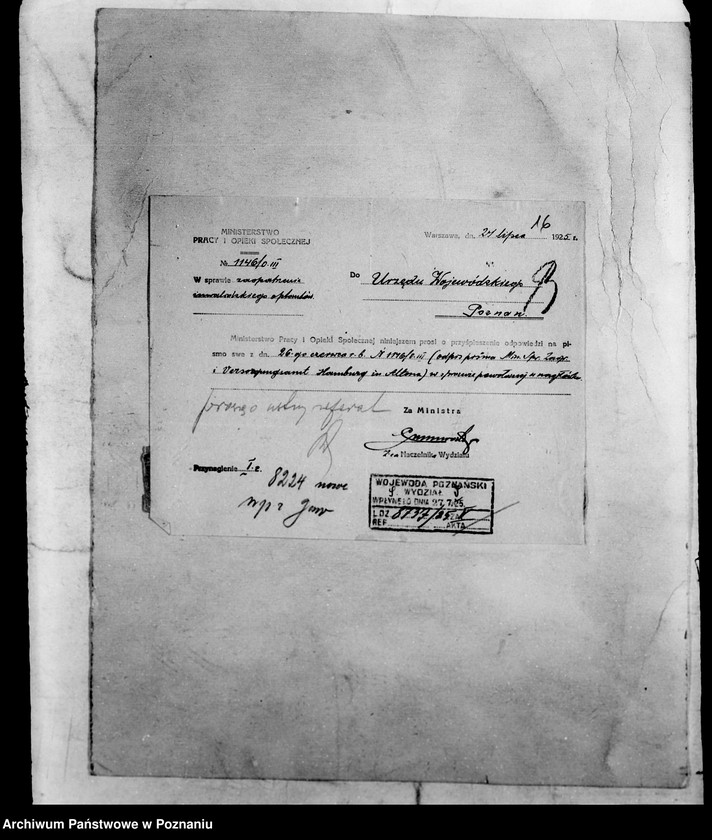 16
MINISTERSTWO
PRACY I OPIEKI SPOŁECZNEJ
Warszawa, dn. 24 lipca 1925 r.
№ 1146/O.III
W sprawie zaopatrzenia
inwalidzkiego optantów
Do Urzędu Wojewódzkiego
Poznań
Ministerstwo Pracy i Opieki Społecznej niniejszem prosi o przyśpieszenie odpowiedzi na pi-
smo swe z dn. 26-go czerwca r.b. № 1146/O.III (odpis pisma Min. Spr. Zagr.
i Versorgungsamt Hamburg in Altona) w sprawie powołanej w nagłówku
proszę ustny referat
Za Ministra
Naczelnika Wydziału
Przynaglenie I r.
8224 nowe
WOJEWODA POZNAŃSKI
WYDZIAŁ
WPŁYNĘŁO DNIA 27.7.25
L.DZ. 8797/25 ZAŁ.
REF. AKTA
Archiwum Państwowe w Poznaniu